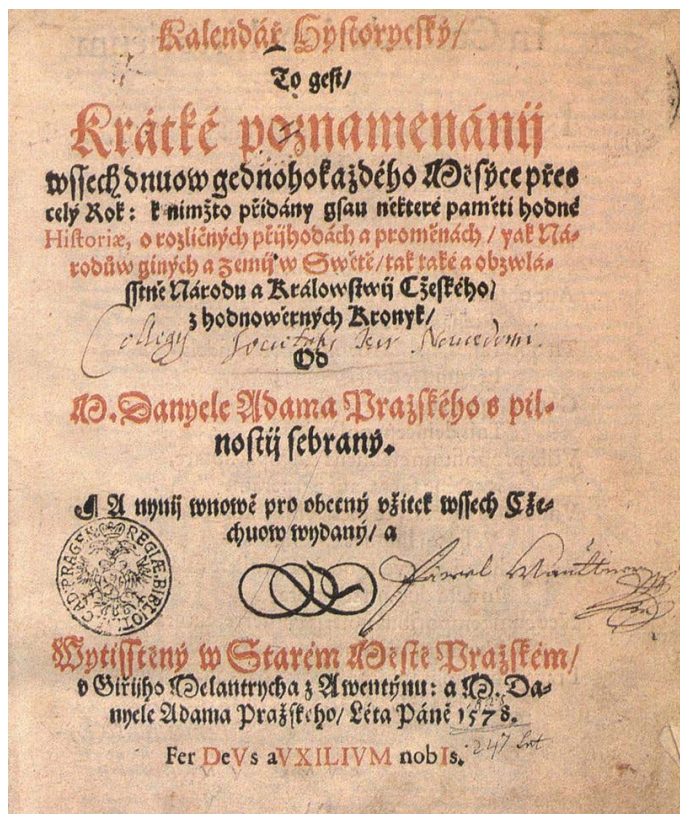 Kalendář Hystorycský/
To gest/
Krátké poznamenánij
wssech dnuow gednohokaždého Měsýce přes
celý Rok: k nimžto přidány gsau některé paměti hodné
Historiæ, o rozličných přijhodách a proměnách / yak Ná-
rodůw giných a zemij w Swětě/ tak také a obzwlá-
sstně Národu a Králowstwij Cžeského/
z hodnowěrných Kronyk/
Collegij Societatis Iesu
Od
M. Danyele Adama Pražského s pil-
nostij sebraný.
¶ A nynij wnowě pro obecný vžitek wssech Cže-
chuow wydaný/ a
CÆS. REGIÆ. BIBLIOT. ACAD. PRAGEN
Pawel
Wytisstěný w Starém Městě Pražském/
v Giřijho Melantrycha z Awentýnu: a M. Da-
nyele Adama Pražského/ Léta Páně 1578.
247 let
Fer DeVs aVXILIVM nobIs.